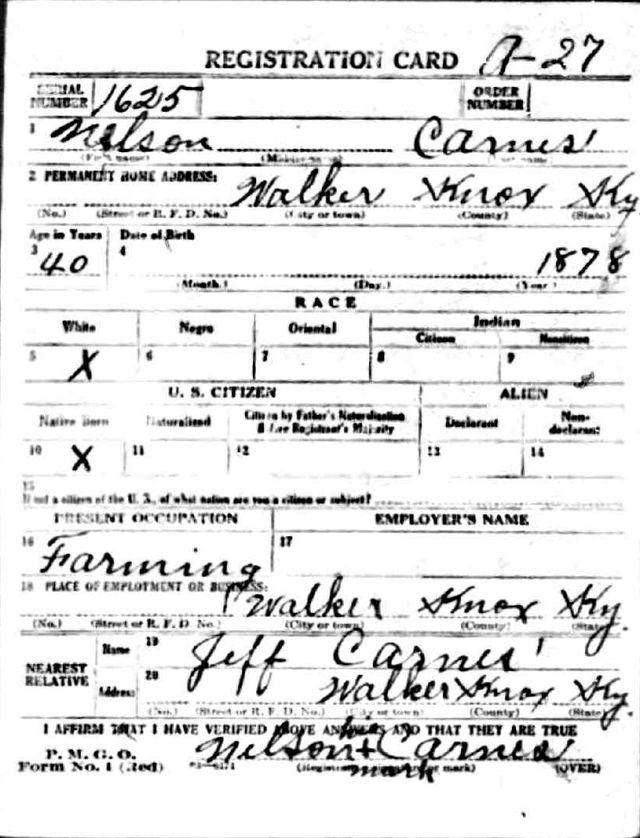 REGISTRATION CARD A-27
SERIAL NUMBER 1625 ORDER NUMBER
1 Nelson Carnes
(First name) (Middle name) (Last name)
2 PERMANENT HOME ADDRESS: Walker Knox Ky
(No.) (Street or R. F. D. No.) (City or town) (County) (State)
Age in Years Date of Birth
3 40 4 1878
(Month.) (Day.) (Year.)
RACE
White Negro Oriental Indian
Citizen Noncitizen
5 X 6 7 8 9
U. S. CITIZEN ALIEN
Native Born Naturalized Citizen by Father's Naturalization Before Registrant's Majority Declarant Non-declarant
10 X 11 12 13 14
15
If not a citizen of the U. S., of what nation are you a citizen or subject?
PRESENT OCCUPATION EMPLOYER'S NAME
16 Farming 17
18 PLACE OF EMPLOYMENT OR BUSINESS:
Walker Knox Ky.
(No.) (Street or R. F. D. No.) (City or town) (County) (State)
NEAREST RELATIVE Name 19 Jeff Carnes
Address 20 Walker Knox Ky.
(No.) (Street or R. F. D. No.) (City or town) (County) (State)
I AFFIRM THAT I HAVE VERIFIED ABOVE ANSWERS AND THAT THEY ARE TRUE
P. M. G. O.
Form No. 1 (Red) Nelson his + Carnes
mark (OVER)